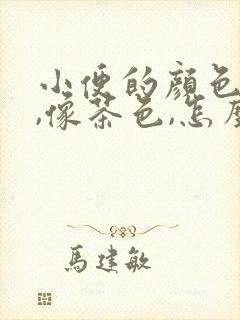 小便的顏色
,像茶色,怎麼
馬建敏